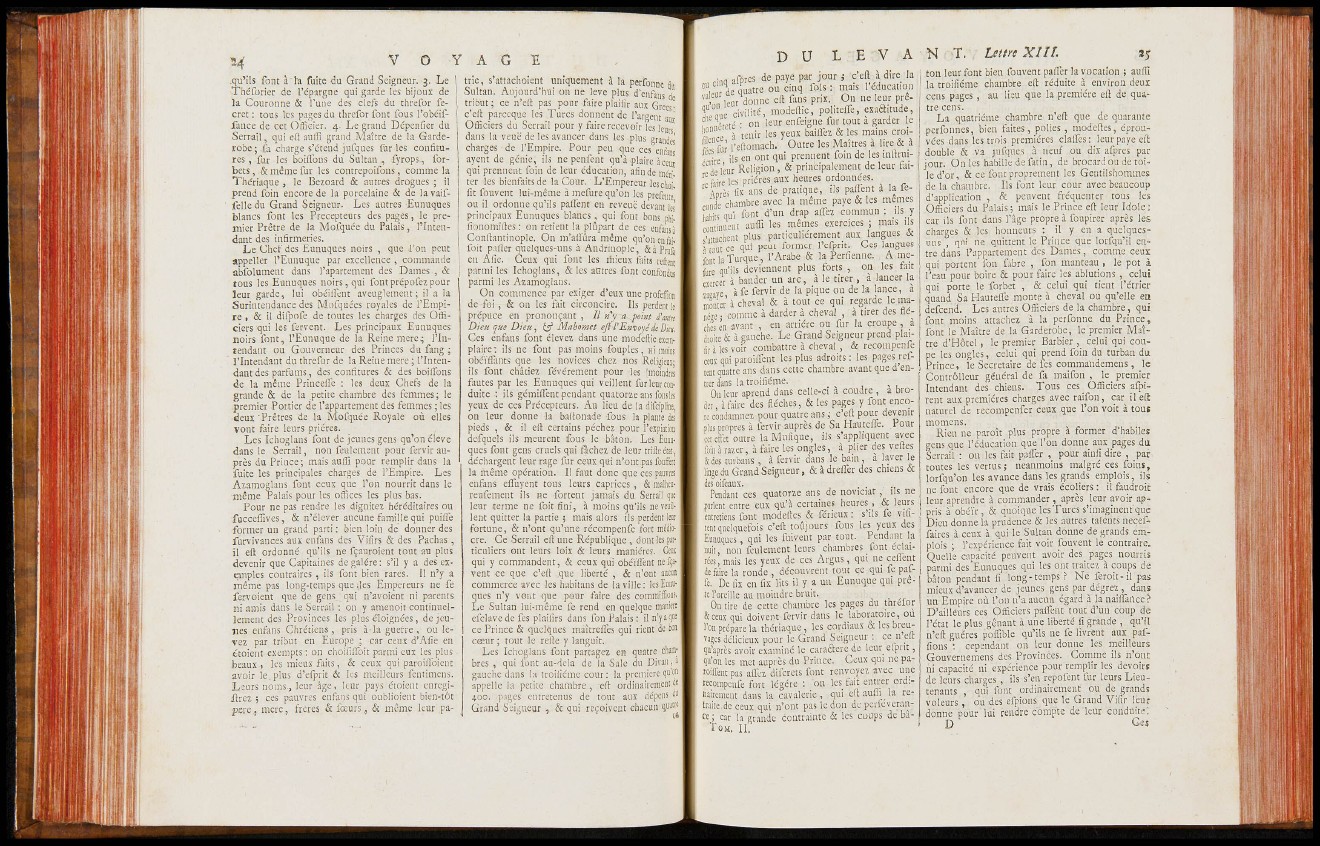 24 V O Y A G E
qu'ils ſont à la ſuite du Grand Seigneur. 3. Le
Théſorier de l'épargne qui garde les bijoux de
la Couronne & l'une des clefs du threſor ſe-
cret: tous les pages du threſor ſont ſous l'obéïſ-
ſance de cet Officier. 4. Le grand Dépenſier du
Serrail, qui eſt auſſi grand Maître de la Garde-
robe; ſa charge s'étend juſques ſur les confitu-
res, ſur les boiſſons du Sultan, ſyrops, ſor-
bets, & même ſur les contrepoiſons, comme la
Thériaque, le Bezoard & autres drogues; il
prend ſoin encore de la porcelaine & de la vaiſ-
ſelle du Grand Seigneur. Les autres Eunuques
blancs ſont les Precepteurs des pages, le pre-
mier Prêtre de la Moſquée du Palais, l'Inten-
dant des infirmeries.
Le Chef des Eunuques noirs, que l'on peut
appeller l'Eunuque par excellence, commande
abſolument dans l'apartement des Dames, &
tous les Eunuques noirs, qui ſont prépoſez pour
leur garde, lui obéïſſent aveuglement; il a la
Surintendance des Moſquées royales de l'Empi-
re, & il diſpoſe de toutes les charges des Offi-
ciers qui les ſervent. Les principaux Eunuques
noirs ſont, l'Eunuque de la Reine mere; l'In-
tendant ou Gouverneur des Princes du ſang;
l'Intendant du threſor de la Reine mere; l'Inten-
dant des parfums, des confitures & des boiſſons
de la même Princeſſe: les deux Chefs de la
grande & de la petite chambre des femmes; le
premier Portier de l'appartement des femmes; les
deux Prêtres de la Moſquée Royale où elles
vont faire leurs priéres.
Les Ichoglans ſont de jeunes gens qu'on éleve
dans le Serrail, non ſeulement pour ſervir au-
près du Prince; mais auſſi pour remplir dans la
ſuite les principales charges de l'Empire. Les
Azamoglans ſont ceux que l'on nourrit dans le
même Palais pour les offices les plus bas.
Pour ne pas rendre les dignitez héréditaires ou
ſucceſſives, & n'élever aucune famille qui puiſſe
former un grand parti: bien loin de donner des
ſurvivances aux enfans des Viſirs & des Pachas,
il eſt ordonné qu'ils ne ſçauroient tout au plus
devenir que Capitaines de galére: s'il y a des ex-
emples contraires, ils ſont bien rares. Il n'y a
même pas long-temps que les Empereurs ne ſe
ſervoient que de gens qui n'avoient ni parents
ni amis dans le Serrail: on y amenoit continuel-
lement des Provinces les plus éloignées, de jeu-
nes enfans Chrétiens, pris à la guerre, ou le-
vez par tribut en Europe; car ceux d'Aſie en
étoient exempts: on choiſiſſoit parmi eux les plus
beaux, les mieux faits, & ceux qui paroiſſoient
avoir le plus d'eſprit & les meilleurs ſentimens.
Leurs noms, leur âge, leur pays étoient enregi-
ſtrez; ces pauvres enfans qui oublioient bien-tôt
pere, mere, freres & ſœurs, & même leur pa-
trie, s'attachoient uniquement à la perſonne du
Sultan. Aujourd'hui on ne leve plus d'enfans de
tribut; ce n'eſt pas pour faire plaiſir aux Grecs:
c'eſt parceque les Turcs donnent de l'argent aux
Officiers du Serrail pour y faire recevoir les leurs,
dans la veuë de les avancer dans les plus grandes
charges de l'Empire. Pour peu que ces enfans
ayent de génie, ils ne penſent qu'à plaire à ceux
qui, prennent ſoin de leur éducation, afin de méri-
ter les bienfaits de la Cour. L'Empereur les choi-
ſit ſouvent lui-même à meſure qu'on les preſente,
ou il ordonne qu'ils paſſent en reveuë devant les
principaux Eunuques blancs, qui ſont bons phi-
ſionomiſtes: on retient la plûpart de ces enfans à
Conſtantinople. On m'aſſûra même qu'on en fai-
ſoit paſſer quelques-uns à Andrinople, & à Pruſe
en Aſie. Ceux qui ſont les mieux faits reſtent
parmi les Ichoglans, & les autres ſont confondus
parmi les Azamoglans.
On commence par exiger d'eux une profeſſion
de foi, & on les fait circoncire. Ils perdent le
prépuce en prononçant, Il n'y a point d'autre
Dieu que Dieu, & Mahomet eſt l'Envoyé de Dieu.
Ces enfans ſont élevez dans une modeſtie exem-
plaire: ils ne ſont pas moins ſouples, ni moins
obéïſſants que les novices chez nos Religieux;
ils ſont châtiez ſévérement pour les moindres
fautes par les Eunuques qui veillent ſur leur con-
duite: ils gémiſſent pendant quatorze ans ſous les
yeux de ces Précepteurs. Au lieu de la diſcipline,
on leur donne la baſtonade ſous la plante des
pieds, & il eſt certains péchez pour l'expiation
deſquels ils meurent ſous le bâton. Les Eunu-
ques ſont gens cruels qui fâchez de leur triſte état,
déchargent leur rage ſur ceux qui n'ont pas ſouffert
la même opération. Il faut donc que ces pauvres
enfans eſſuyent tous leurs caprices, & malheu-
reuſement ils ne ſortent jamais du Serrail que
leur terme ne ſoit fini, à moins qu'ils ne veuil-
lent quitter la partie; mais alors ils perdent leur
fortune, & n'ont qu'une récompenſe fort médio-
cre. Ce Serrail eſt une République, dont les par-
ticuliers ont leurs loix & leurs maniéres. Ceux
qui y commandent, & ceux qui obéïſſent ne ſça-
vent ce que c'eſt que liberté, & n'ont aucun
commerce avec les habitans de la ville: les Eunu-
ques n'y vont que pour faire des commiſſions.
Le Sultan lui-même ſe rend en quelque maniére
eſclave de ſes plaiſirs dans ſon Palais: il n'y a que
ce Prince & quelques maîtreſſes qui rient de bon
cœur; tout le reſte y languit.
Les Ichoglans ſont partagez en quatre cham-
bres, qui ſont au-dela de la Sale du Divan, à
gauche dans la troiſiéme cour: la premiere qu'on
appelle la petite chambre, eſt ordinairement de
400. pages entretenus de tout aux dépens du
Grand Seigneur, & qui reçoivent chacun quatre
ou cinq aſpres de paye par jour; c'eſt à dire la
valeur de quatre ou cinq ſols: mais l'éducation
qu'on leur donne eſt ſans prix. On ne leur prê-
che que civilité, modeſtie, politeſſe, exactitude,
honnêteté: on leur enſeigne ſur tout à garder le
ſilence, à tenir les yeux baiſſez & les mains croi-
ſées ſur l'eſtomach. Outre les Maîtres à lire & à
écrire, ils en ont qui prennent ſoin de les inſtrui-
re de leur Religion, & principalement de leur fai-
re faire les priéres aux heures ordonnées.
Après ſix ans de pratique, ils paſſent à la ſe-
conde chambre avec la même paye & les mêmes
habits qui ſont d'un drap aſſez commun; ils y
continuent auſſi les mêmes exercices; mais ils
s'attachent plus particuliérement aux langues &
à tout ce qui peut former l'eſprit. Ces langues
ſont la Turque, l'Arabe & la Perſienne. A me-
ſure qu'ils deviennent plus forts, on les fait
exercer à bander un arc, à le tirer, à lancer la
zagaye, à ſe ſervir de la pique ou de la lance, à
monter à cheval & à tout ce qui regarde le ma-
nége; comme à darder à cheval, à tirer des flé-
ches en avant, en arriére ou ſur la croupe, à
droite & à gauche. Le Grand Seigneur prend plai-
ſir à les voir combattre à cheval, & recompenſe
ceux qui paroiſſent les plus adroits: les pages reſ-
tent quatre ans dans cette chambre avant que d'en-
trer dans la troiſiéme.
On leur aprend dans celle-ci à coudre, à bro-
der, à faire des fléches, & les pages y ſont enco-
re condamnez pour quatre ans; c'eſt pour devenir
plus propres à ſervir auprès de Sa Hauteſſe. Pour
cet effet outre la Muſique, ils s'appliquent avec
ſoin à razer, à faire les ongles, à plier des veſtes
& des turbans, à ſervir dans le bain, à laver le
linge du Grand Seigneur, & à dreſſer des chiens &
des oiſeaux.
Pendant ces quatorze ans de noviciat, ils ne
parlent entre eux qu'à certaines heures, & leurs
entretiens ſont modeſtes & ſérieux: s'ils ſe viſi-
tent quelquefois c'eſt toûjours ſous les yeux des
Eunuques, qui les ſuivent par tout. Pendant la
nuit, non ſeulement leurs chambres ſont éclai-
rées, mais les yeux de ces Argus, qui ne ceſſent
de faire la ronde, découvrent tout ce qui ſe paſ-
ſe. De ſix en ſix lits il y a un Eunuque qui prê-
te l'oreille au moindre bruit.
On tire de cette chambre les pages du thréſor
& ceux qui doivent ſervir dans le laboratoire, où
l'on prépare la thériaque, les cordiaux & les breu-
vages délicieux pour le Grand Seigneur: ce n'eſt
qu'après avoir examiné le caractére de leur eſprit,
qu'on les met auprès du Prince. Ceux qui ne pa-
roiſſent pas aſſez diſcrets ſont renvoyez avec une
recompenſe fort légére: on les fait entrer ordi-
nairement dans la cavalerie, qui eſt auſſi la re-
traite de ceux qui n'ont pas le don de perſéveran-
ce; car la grande contrainte & les coups de bâ-
TOM. II.
D U L E V A N T. Lettre XIII. 25
ton leur font bien ſouvent paſſer la vocation; auſſi
la troiſiéme chambre eſt réduite à environ deux
cens pages, au lieu que la premiére eſt de qua-
tre cens.
La quatriéme chambre n'eſt que de quarante
perſonnes, bien faites, polies, modeſtes, éprou-
vées dans les trois premiéres claſſes: leur paye eſt
double & va juſques à neuf ou dix aſpres par
jour. On les habille de ſatin, de brocard ou de toi-
le d'or, & ce ſont proprement les Gentilshommes
de la chambre. Ils font leur cour avec beaucoup
d'application, & peuvent fréquenter tous les
Officiers du Palais; mais le Prince eſt leur Idole:
car ils ſont dans l'âge propre à ſoupirer après les
charges & les honneurs: il y en a quelques-
uns, qui ne quittent le Prince que lorſqu'il en-
tre dans l'appartement des Dames, comme ceux
qui portent ſon ſabre, ſon manteau, le pot à
l'eau pour boire & pour faire les ablutions, celui
qui porte le ſorbet, & celui qui tient l'étrier
quand Sa Hauteſſe monte à cheval ou qu'elle en
deſcend. Les autres Officiers de la chambre, qui
ſont moins attachez à la perſonne du Prince,
ſont le Maître de la Garderobe, le premier Maî-
tre d'Hôtel, le premier Barbier, celui qui cou-
pe les ongles, celui qui prend ſoin du turban du
Prince, le Secretaire de ſes commandemens, le
Contrôlleur général de ſa maiſon, le premier
Intendant des chiens. Tous ces Officiers aſpi-
rent aux premiéres charges avec raiſon, car il eſt
naturel de recompenſer ceux que l'on voit à tous
momens.
Rien ne paroît plus propre à former d'habiles
gens que l'éducation que l'on donne aux pages du
Serrail: on les fait paſſer, pour ainſi dire, par
toutes les vertus; neanmoins malgré ces ſoins,
lorſqu'on les avance dans les grands emplois, ils
ne ſont encore que de vrais écoliers: il faudroit
leur aprendre à commander, après leur avoir ap-
pris à obéïr, & quoique les Turcs s'imaginent que
Dieu donne la prudence & les autres talents neceſ-
ſaires à ceux à qui le Sultan donne de grands em-
plois; l'expérience fait voir ſouvent le contraire.
Quelle capacité peuvent avoir des pages nourris
parmi des Eunuques qui les ont traitez à coups de
bâton pendant ſi long-temps? Ne ſeroit-il pas
mieux d'avancer de jeunes gens par dégrez, dans
un Empire où l'on n'a aucun égard à la naiſſance?
D'ailleurs ces Officiers paſſent tout d'un coup de
l'état le plus gênant à une liberté ſi grande, qu'il
n'eſt guéres poſſible qu'ils ne ſe livrent aux paſ-
ſions: cependant on leur donne les meilleurs
Gouvernemens des Provinces. Comme ils n'ont
ni capacité ni expérience pour remplir les devoirs
de leurs charges, ils s'en repoſent ſur leurs Lieu-
tenants, qui ſont ordinairement ou de grands
voleurs, ou des eſpions que le Grand Viſir leur
donne pour lui rendre compte de leur conduite.
D Ces